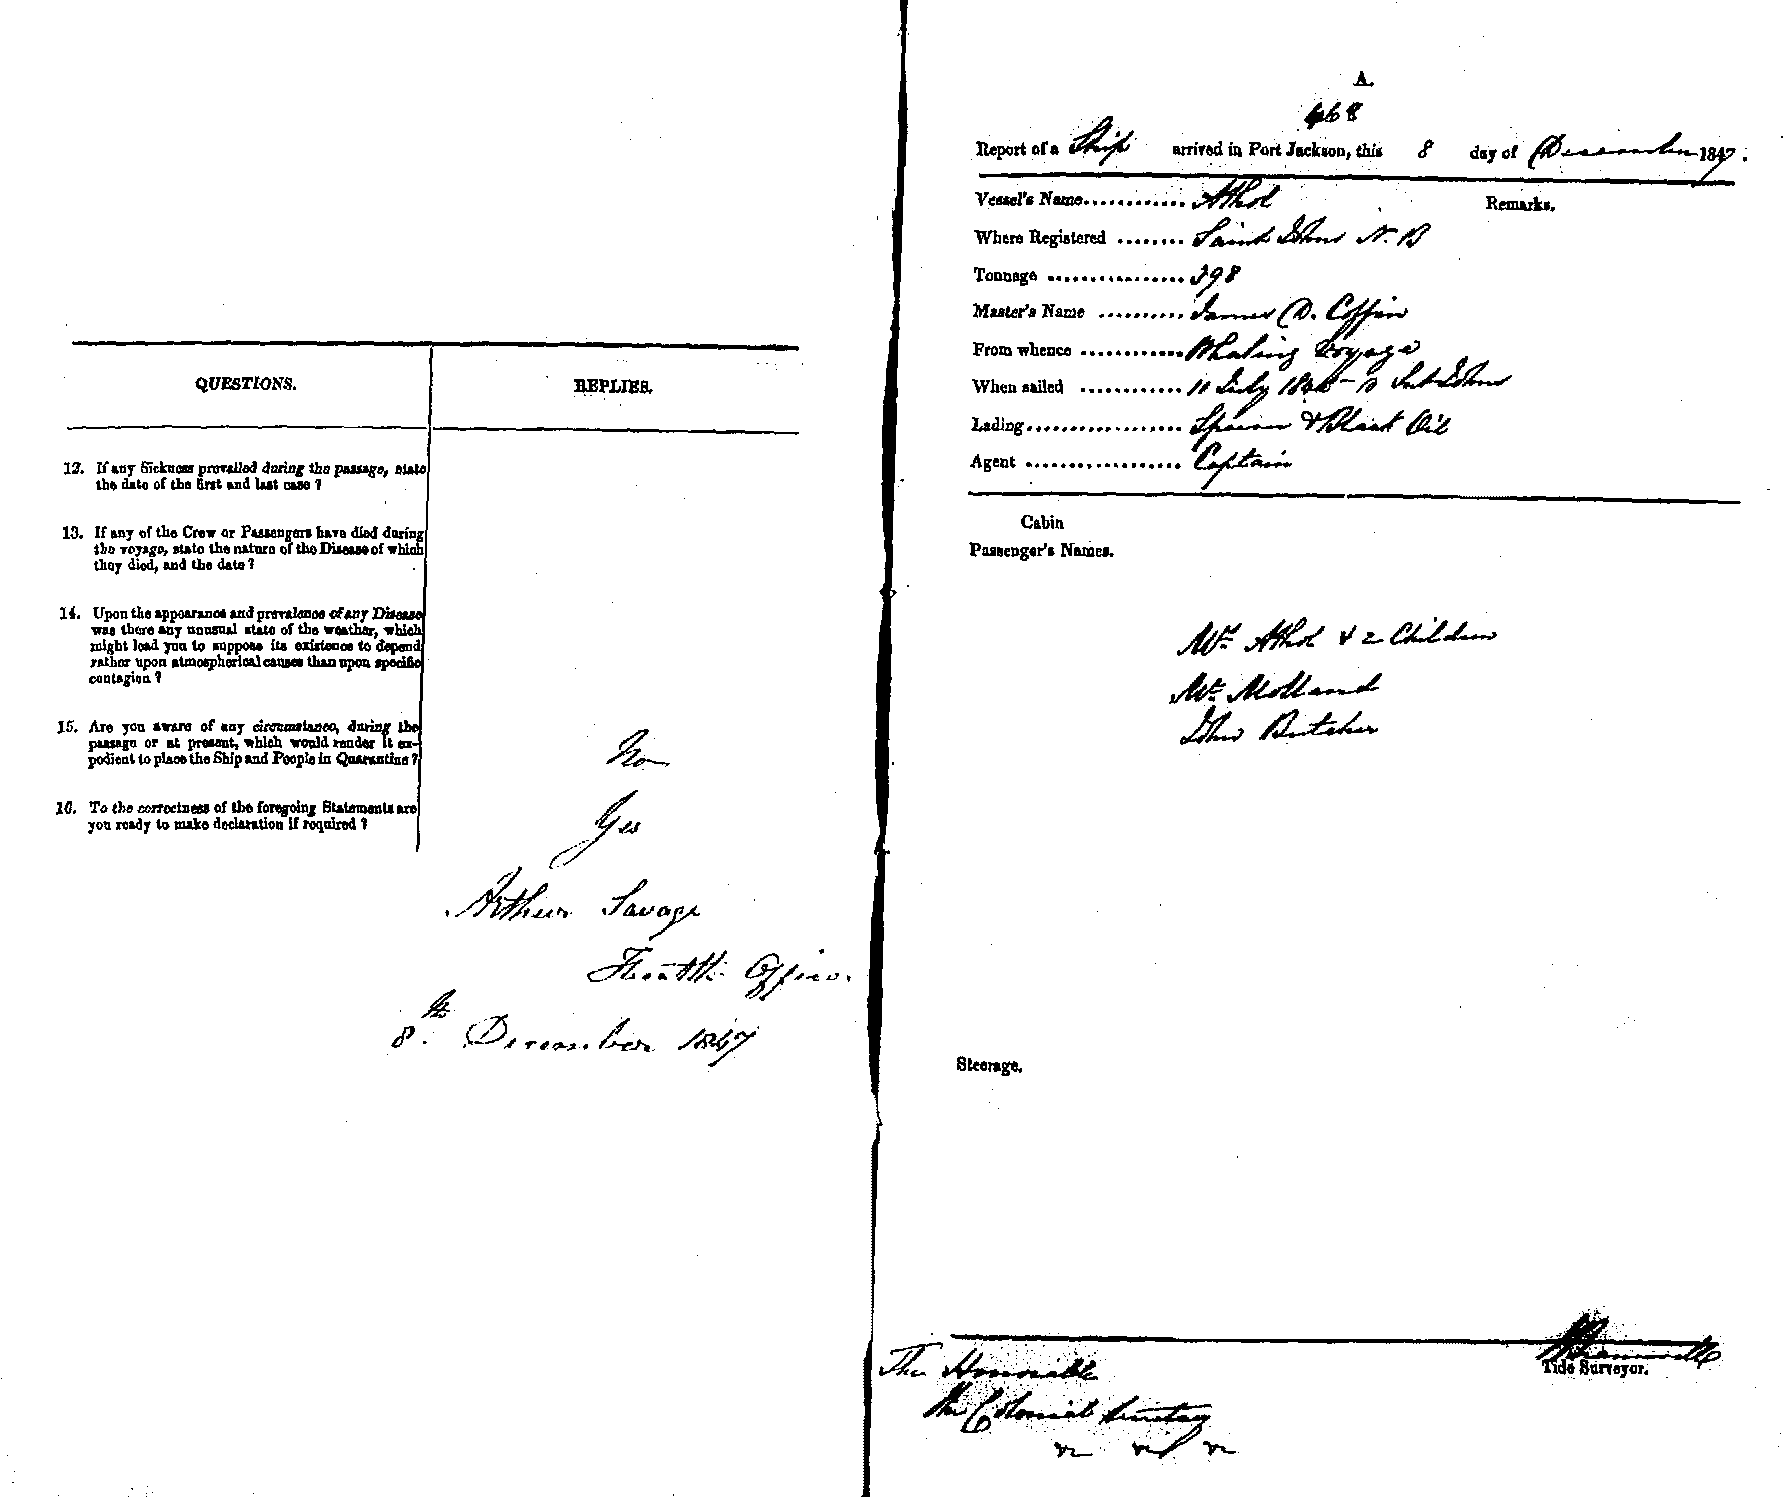 QUESTIONS. REPLIES.
12. If any Sickness prevailed during the passage, state
the date of the first and last case ?
13. If any of the Crew or Passengers have died during
the voyage, state the nature of the Disease of which
they died, and the date ?
14. Upon the appearance and prevalence of any Disease
was there any unusual state of the weather, which
might lead you to suppose its existence to depend
rather upon atmospherical causes than upon specific
contagion ?
15. Are you aware of any circumstance, during the
passage or at present, which would render it ex-
pedient to place the Ship and People in Quarantine ?
No
16. To the correctness of the foregoing Statements are
you ready to make declaration if required ?
Yes
Arthur Savage
Health Officer.
8th December 1847
A.
468
Report of a Ship arrived in Port Jackson, this 8 day of December 1847.
Vessel's Name............ Athol
Remarks.
Where Registered ........ Saint Johns N. B
Tonnage ................. 398
Master's Name .......... James D. Coffin
From whence ............ Whaling Voyage
When sailed ............ 11 July Johns
Lading.................. Sperm & Black Oil
Agent ................... Captain
Cabin
Passenger's Names.
Athol & 2 Children
Mr Molland
John Butcher
Steerage.
Tide Surveyor.
The Honorable
the Colonial Secretary